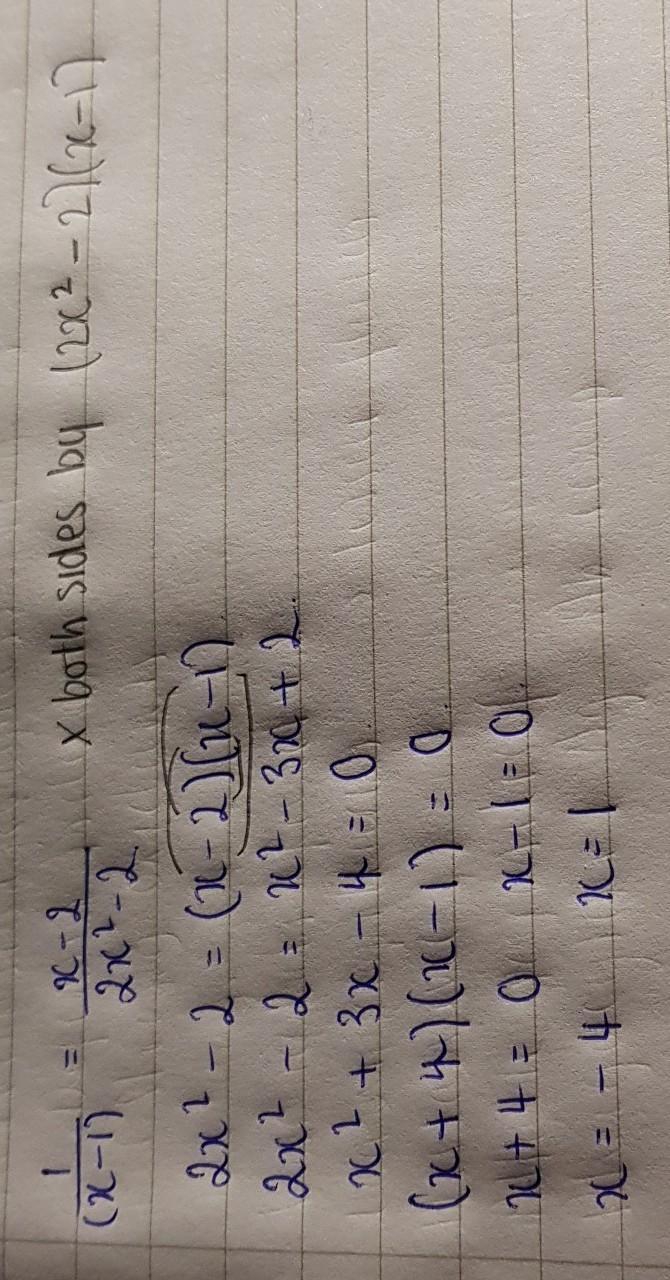 1/(x-1) = (x-2)/(2x²-2) x both sides by (2x²-2)(x-1)
2x² - 2 = (x-2)(x-1)
2x² - 2 = x² - 3x + 2.
x² + 3x - 4 = 0
(x+4)(x-1) = 0
x+4 = 0 x-1 = 0.
x = -4 x = 1